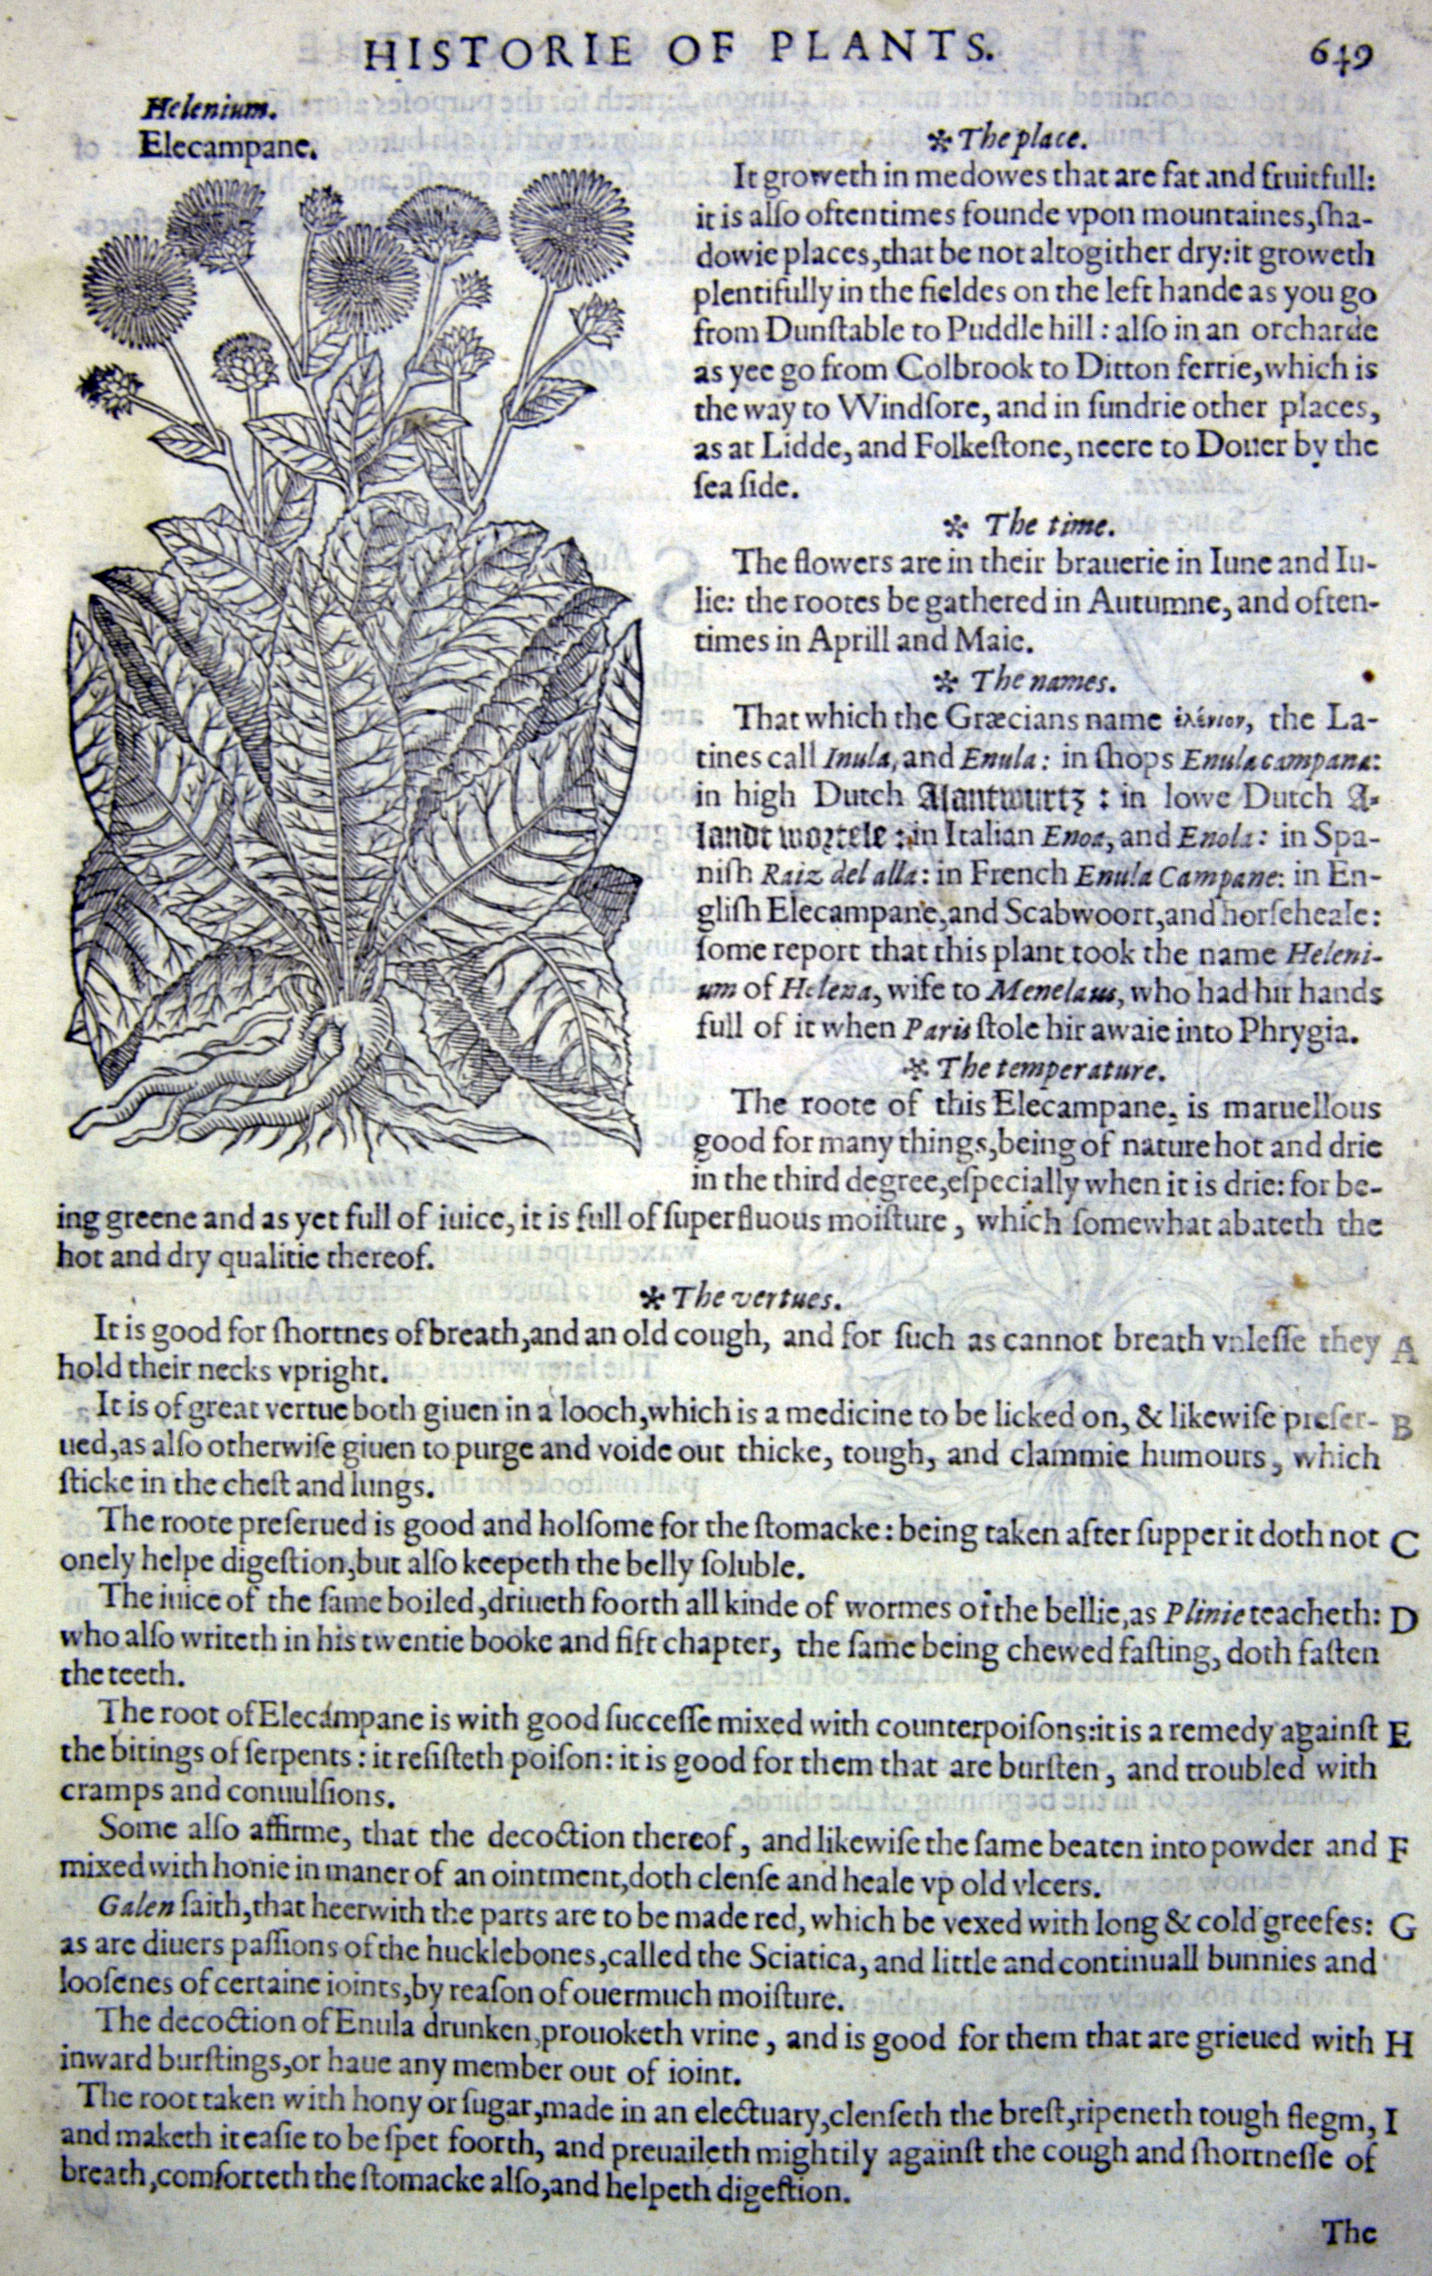 HISTORIE OF PLANTS. 649
Helenium.
Elecampane.
✻ The place.
It groweth in medowes that are fat and fruitfull:
it is alſo oftentimes founde vpon mountaines, ſha-
dowie places, that be not altogither dry: it groweth
plentifully in the fieldes on the left hande as you go
from Dunſtable to Puddle hill: alſo in an orcharde
as yee go from Colbrook to Ditton ferrie, which is
the way to Windſore, and in ſundrie other places,
as at Lidde, and Folkeſtone, neere to Douer by the
ſea ſide.
✻ The time.
The flowers are in their brauerie in Iune and Iu-
lie: the rootes be gathered in Autumne, and often-
times in Aprill and Maie.
✻ The names.
That which the Græcians name ἑλένιον, the La-
tines call Inula, and Enula: in ſhops Enula campana:
in high Dutch Alantwurtz: in lowe Dutch A-
landt wortele: in Italian Enoa, and Enola: in Spa-
niſh Raiz del alla: in French Enula Campane: in En-
gliſh Elecampane, and Scabwoort, and horſeheale:
ſome report that this plant took the name Heleni-
um of Helena, wife to Menelaus, who had hir hands
full of it when Paris ſtole hir awaie into Phrygia.
✻ The temperature.
The roote of this Elecampane, is maruellous
good for many things, being of nature hot and drie
in the third degree, eſpecially when it is drie: for be-
ing greene and as yet full of iuice, it is full of ſuperfluous moiſture, which ſomewhat abateth the
hot and dry qualitie thereof.
✻ The vertues.
It is good for ſhortnes of breath, and an old cough, and for ſuch as cannot breath vnleſſe they A
hold their necks vpright.
It is of great vertue both giuen in a looch, which is a medicine to be licked on, & likewiſe preſer- B
ued, as alſo otherwiſe giuen to purge and voide out thicke, tough, and clammie humours, which
ſticke in the cheſt and lungs.
The roote preſerued is good and holſome for the ſtomacke: being taken after ſupper it doth not C
onely helpe digeſtion, but alſo keepeth the belly ſoluble.
The iuice of the ſame boiled, driueth foorth all kinde of wormes of the bellie, as Plinie teacheth: D
who alſo writeth in his twentie booke and fift chapter, the ſame being chewed faſting, doth faſten
the teeth.
The root of Elecampane is with good ſucceſſe mixed with counterpoiſons: it is a remedy againſt E
the bitings of ſerpents: it reſiſteth poiſon: it is good for them that are burſten, and troubled with
cramps and conuulſions.
Some alſo affirme, that the decoction thereof, and likewiſe the ſame beaten into powder and F
mixed with honie in maner of an ointment, doth clenſe and heale vp old vlcers.
Galen ſaith, that heerwith the parts are to be made red, which be vexed with long & cold greefes: G
as are diuers paſſions of the hucklebones, called the Sciatica, and little and continuall bunnies and
looſenes of certaine ioints, by reaſon of ouermuch moiſture.
The decoction of Enula drunken, prouoketh vrine, and is good for them that are grieued with H
inward burſtings, or haue any member out of ioint.
The root taken with hony or ſugar, made in an electuary, clenſeth the breſt, ripeneth tough flegm, I
and maketh it eaſie to be ſpet foorth, and preuaileth mightily againſt the cough and ſhortneſſe of
breath, comforteth the ſtomacke alſo, and helpeth digeſtion.
The